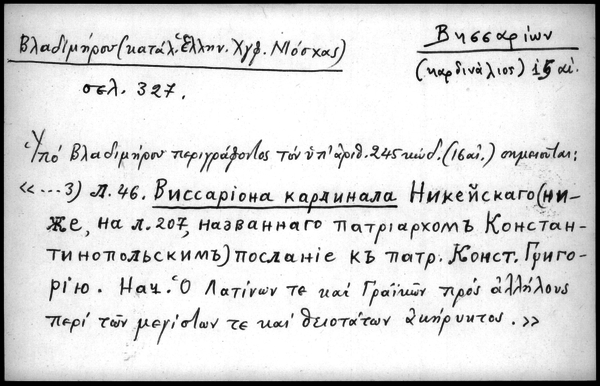 Βλαδιμήρου (κατάλ. Ἑλλην. Χγφ. Μόσχας)
σελ. 327.
Βησσαρίων
(καρδινάλιος) 15 αἰ.
Ὑπό Βλαδιμήρου περιγράφοντος τόν ὑπ' ἀριθ. 245 κώδ. (16 αἰ.) σημειοῦται:
«...3) л. 46. Виссаріона кардинала Никейскаго (ни-
же, на л. 207, названнаго патріархомъ Констан-
тинопольскимъ) посланіе къ патр. Конст. Григо-
рію. Нач. Ὁ Λατίνων τε καί Γραικῶν πρός ἀλλήλους
περί τῶν μεγίστων τε καί θειοτάτων ἀκήρυκτος.»